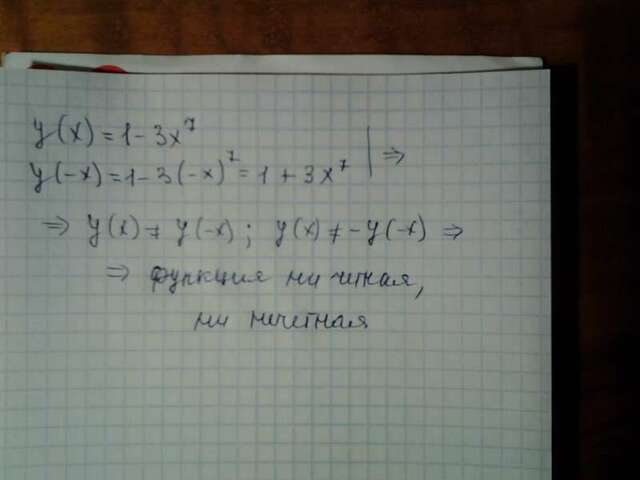 y(x) = 1 - 3x⁷
y(-x) = 1 - 3(-x)⁷ = 1 + 3x⁷ | ⇒
⇒ y(x) ≠ y(-x); y(x) ≠ -y(-x) ⇒
⇒ функция ни четная,
ни нечетная